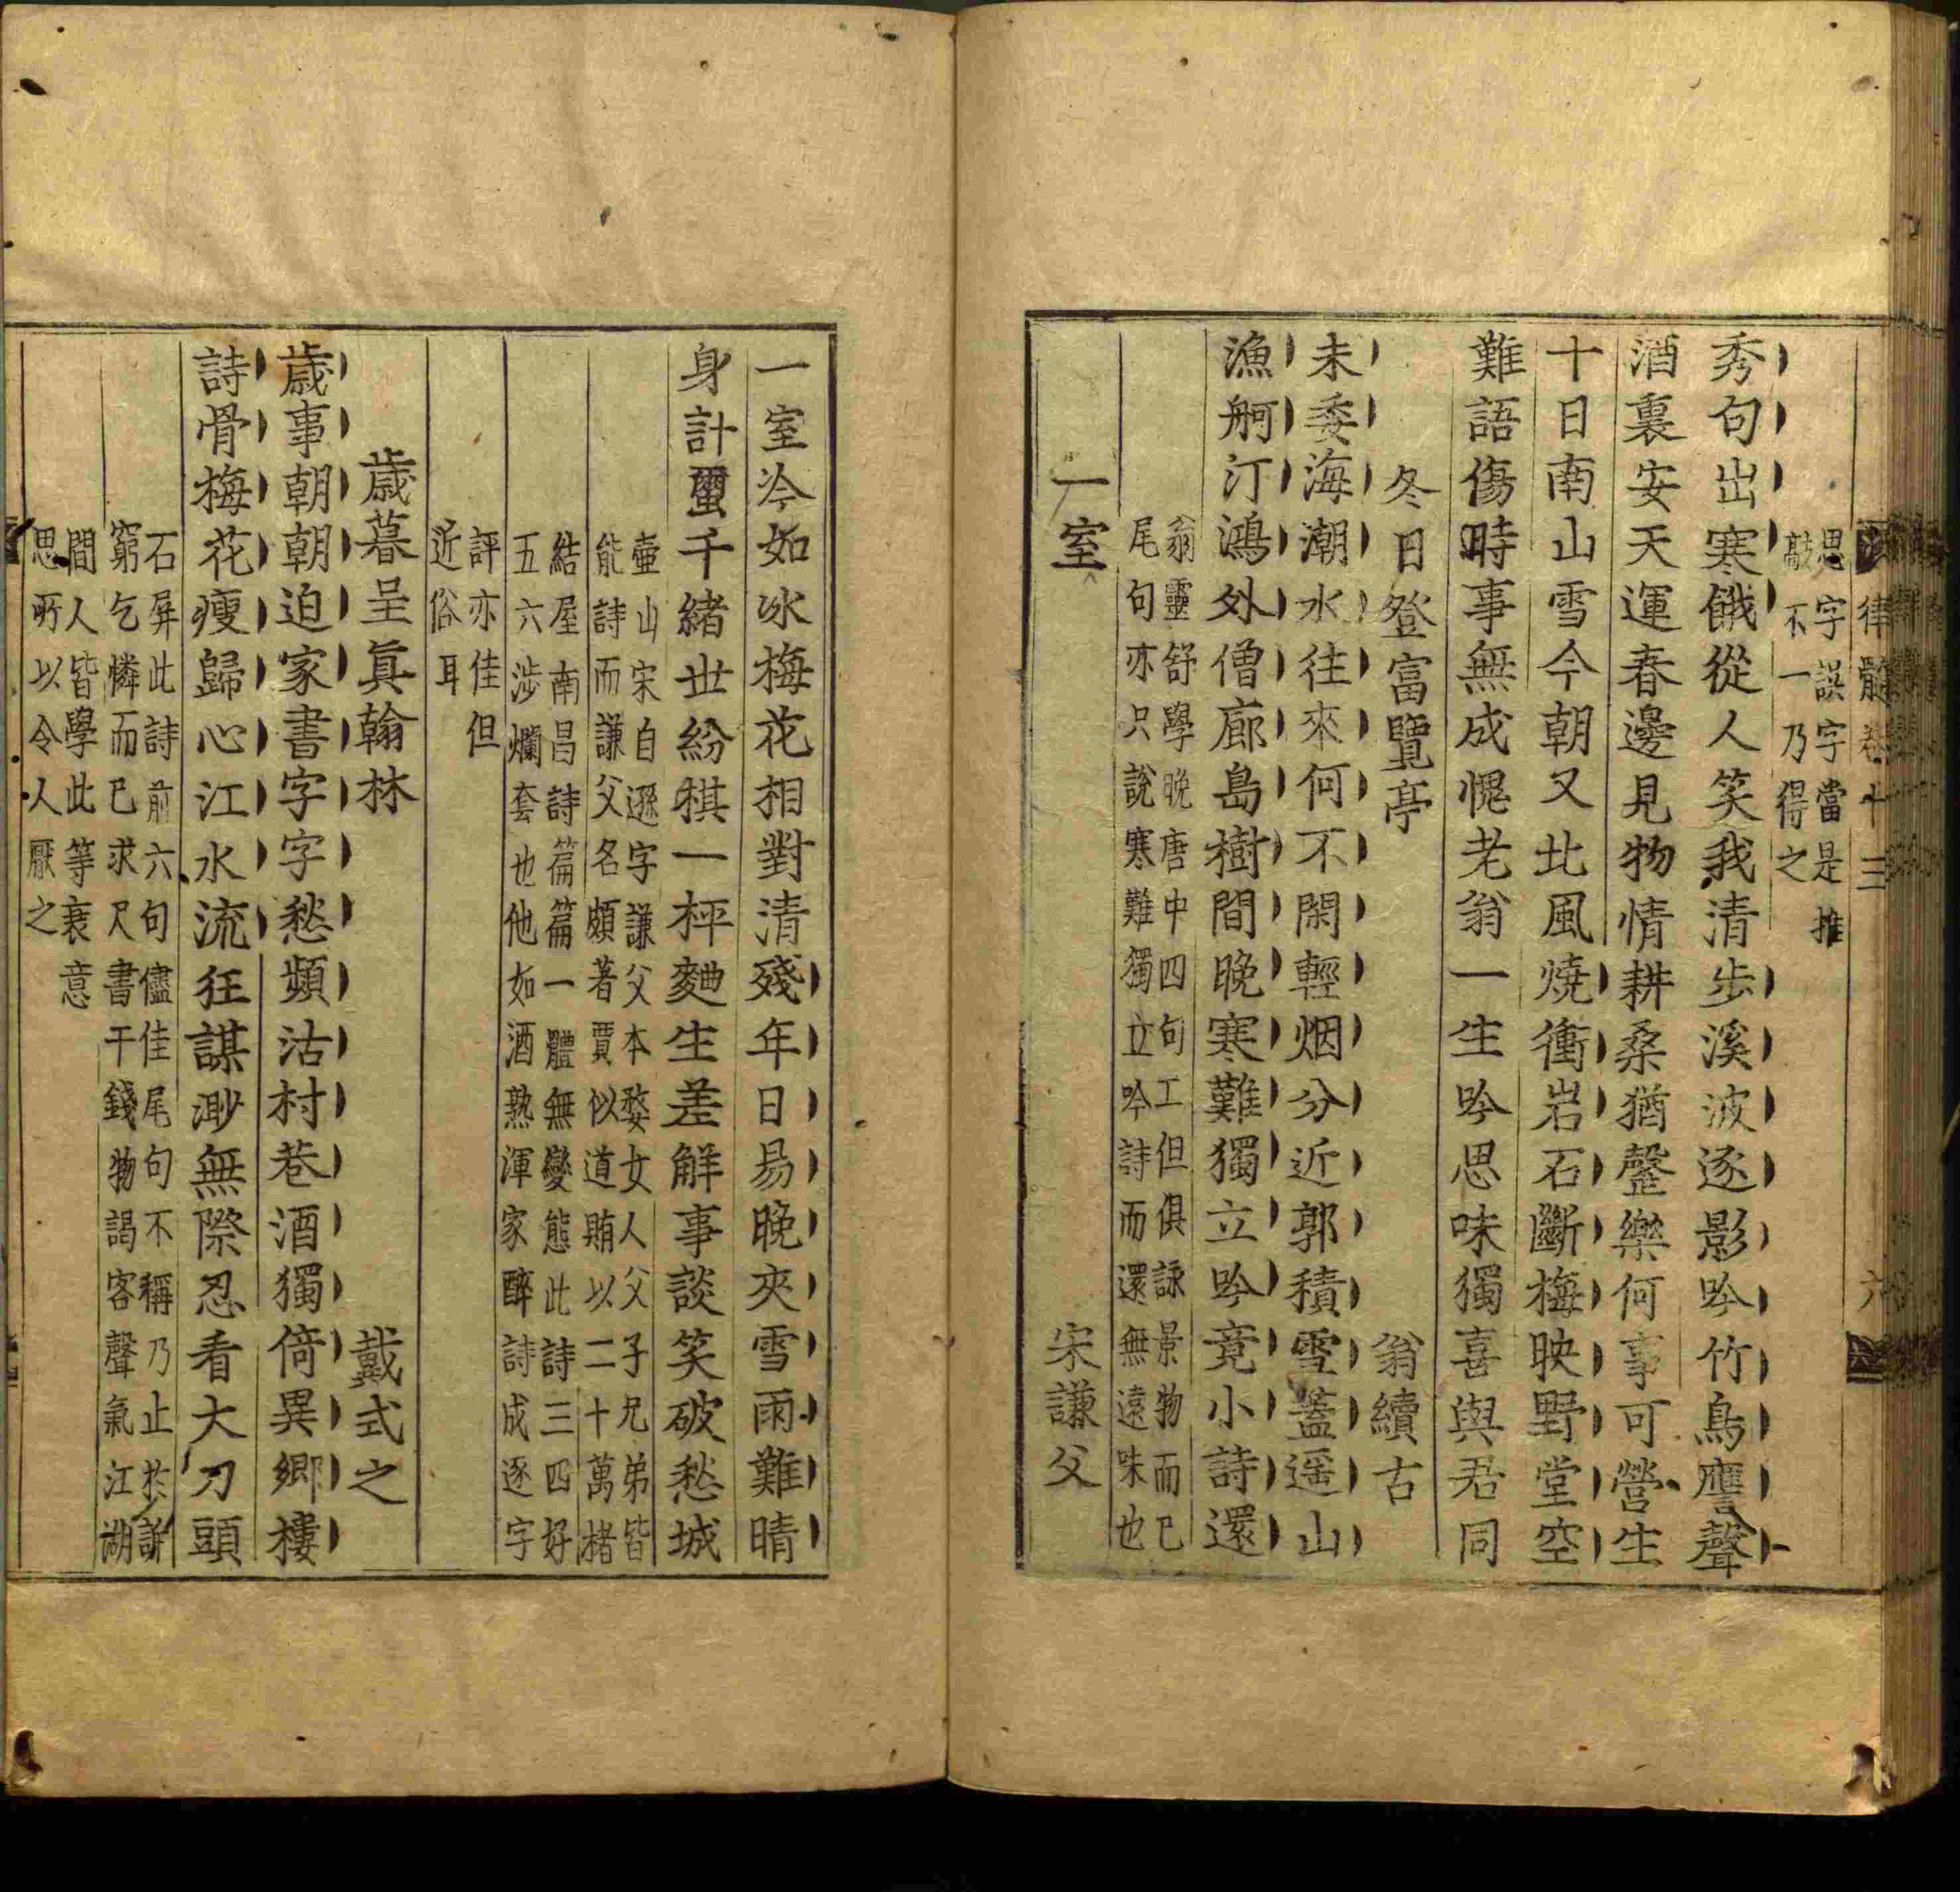 律髓卷十三
六
思字誤字當是推
敲不一乃得之
秀句出寒餓從人笑我清步溪波逐影吟竹鳥鷹聲
酒裏安天運春邊見物情耕桑猶聱樂何事可營生
十日南山雪今朝又北風燒衝岩石斷梅映野堂空
難語傷時事無成愧老翁一生吟思味獨喜與君同
冬日登富覽亭 翁續古
未委海潮水往來何不閑輕烟分近郭積雪蓋遥山
漁舸汀鴻外僧廊島樹間晚寒難獨立吟竟小詩還
翁靈舒學晚唐中四句工但俱詠景物而已
尾句亦只說寒難獨立吟詩而還無遠味也
一室 宋謙父
一室冷如冰梅花相對清殘年日易晚夾雪雨難晴
身計蠒千緒世紛棋一枰麯生差解事談笑破愁城
壷山宋自遜字謙父本婺女人父子兄弟皆
能詩而謙父名頗著賈似道賄以二十萬楮
結屋南昌詩篇篇一體無變態此詩三四好
五六涉爛套也他如酒熟渾家醉詩成逐字
評亦佳但
近俗耳
歳暮呈眞翰林 戴式之
歳事朝朝迫家書字字愁頻沽村巷酒獨倚異鄉樓
詩骨梅花瘦歸心江水流狂謀渺無際忍看大刀頭
石屏此詩前六句儘佳尾句不稱乃止於訴
窮乞憐而已求尺書干錢物謁客聲氣江湖
間人皆學此等衰意
思所以令人厭之